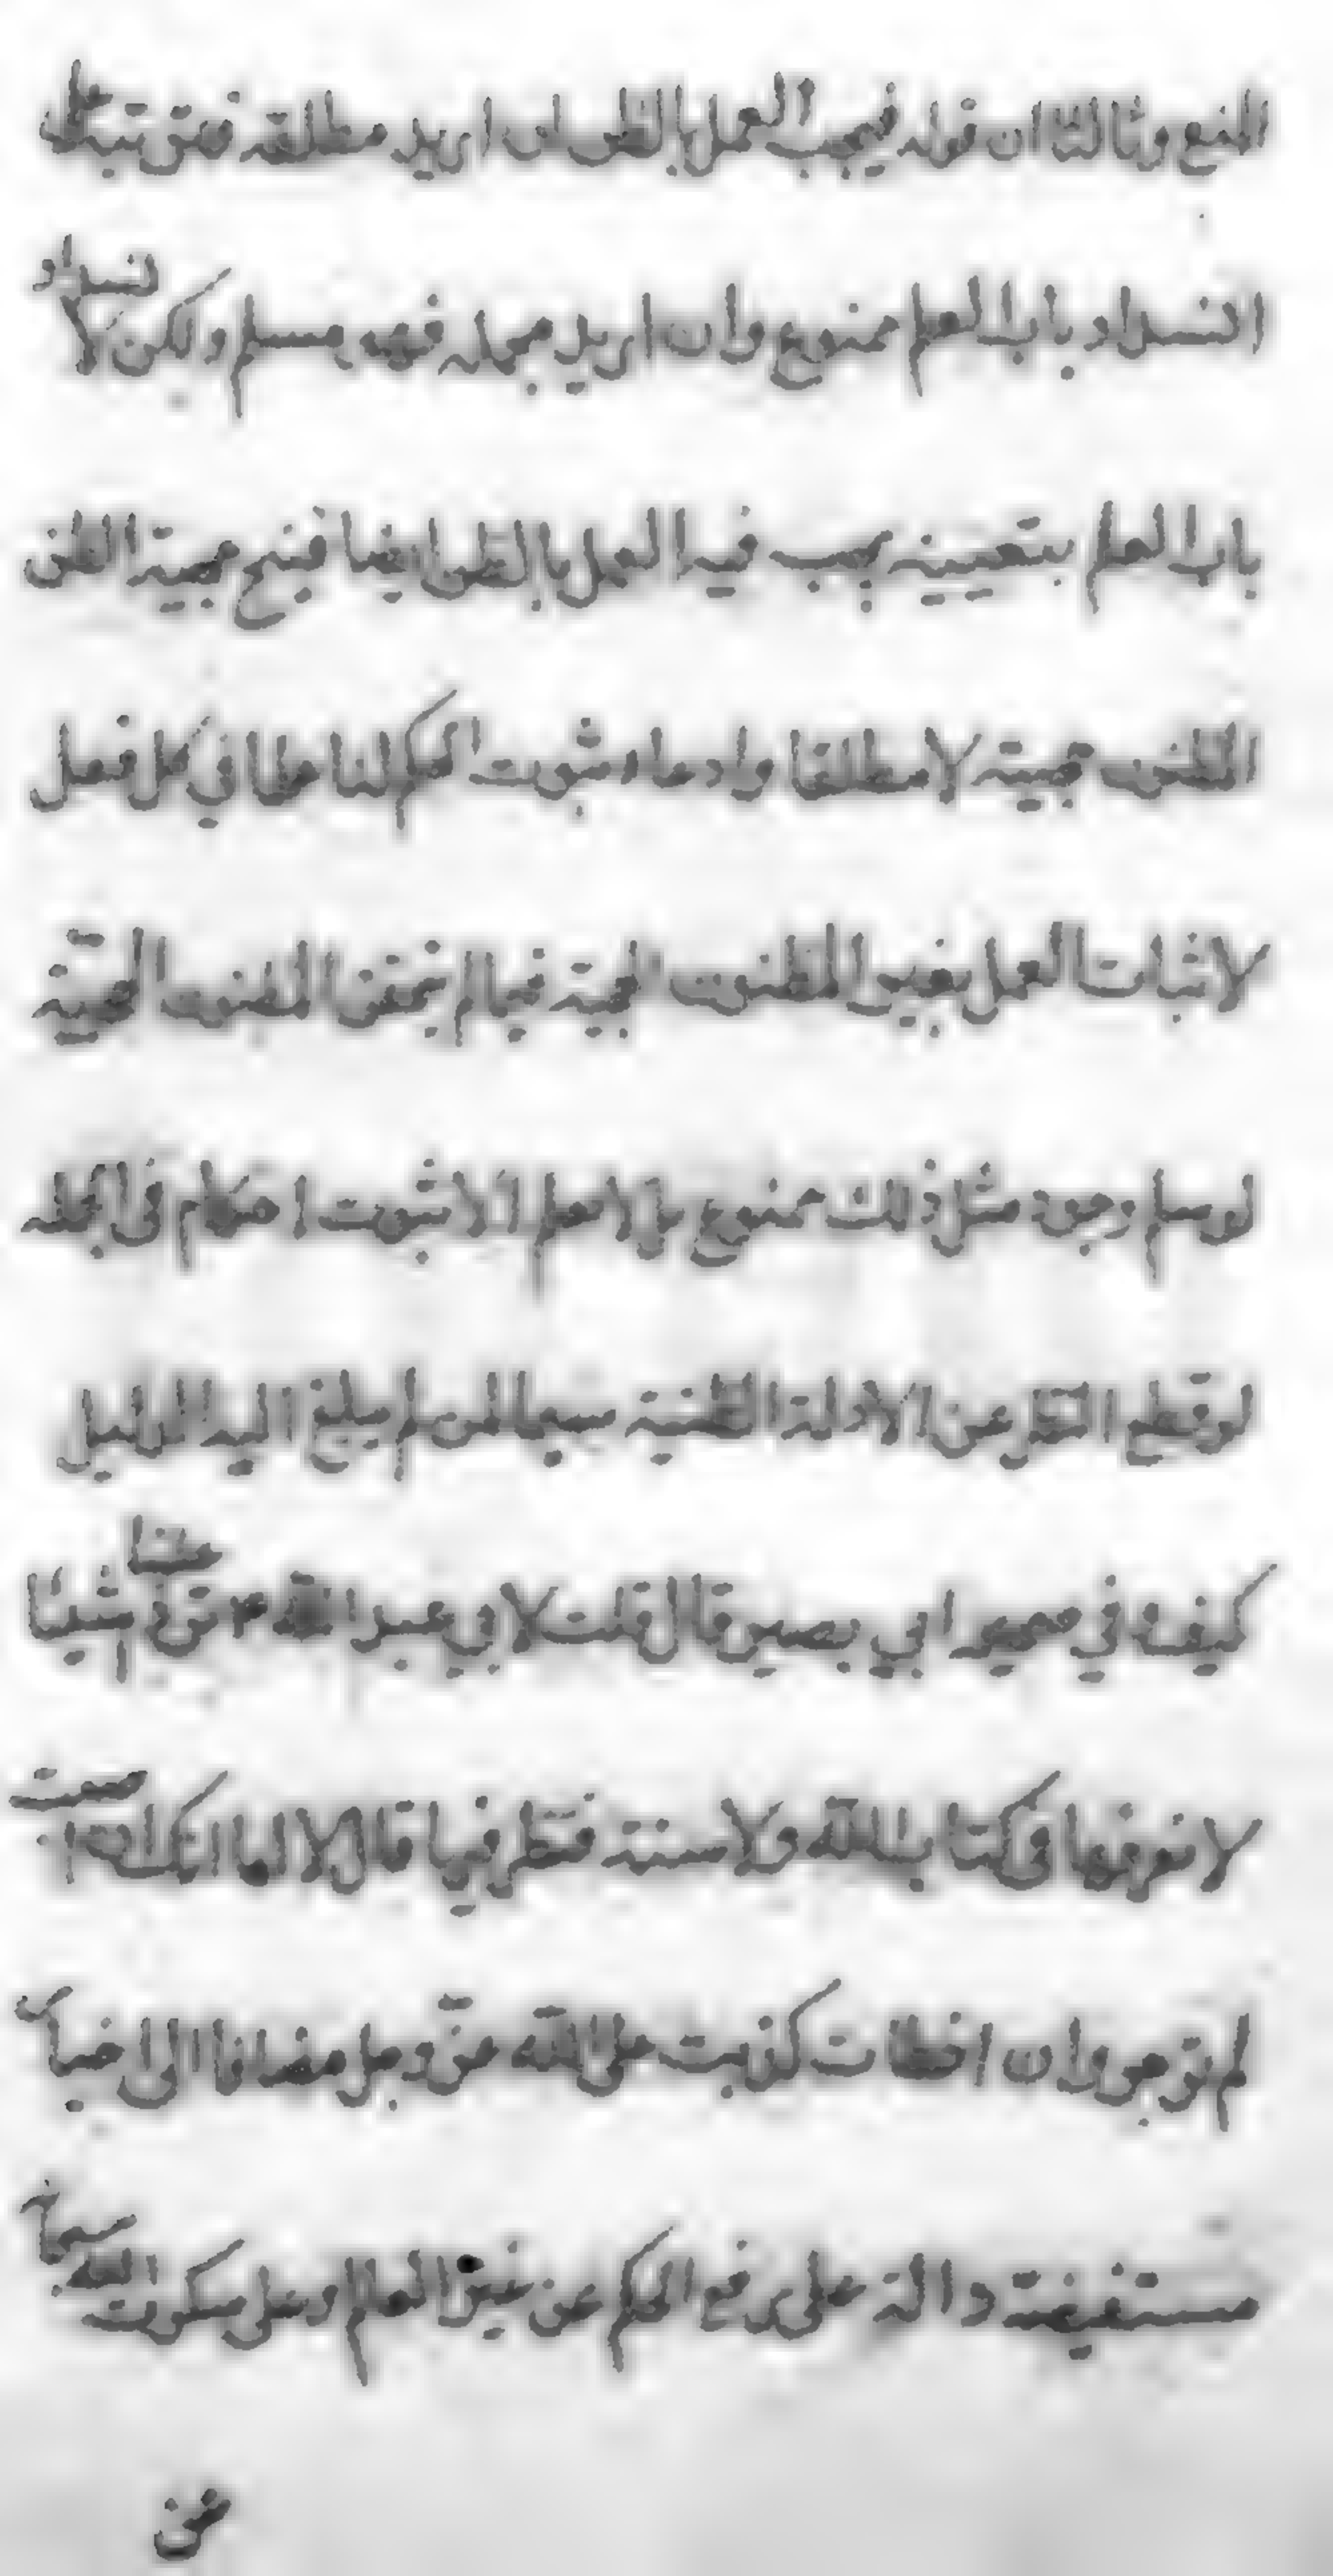 المنع وثالثا ان قوله فيجب العمل بالظن ان اريد مطلقه فمتوقف على
انسداد باب العلم ممنوع وان اريد مجمله فهو مسلم ولكن لانسداد
باب العلم بتعيينه يجب فيه العمل بالظن ايضا فينتج حجية الظن
المظنون حجيته لا مطلقا وادعاء ثبوت الحكم لنا علما في كل فعل
لاثبات العمل بغير المظنون الحجية فيما لم يتحقق المظنون الحجية
لو سلم وجود مثل ذلك ممنوع بل لا نعلم الا ثبوت احكام في الجملة
لو قطع النظر عن الادلة الظنية سيما لمن لم يبلغ اليه الدليل
كيف وفي صحيحة ابي بصير قال قلت لابي عبد الله ع ترد علينا اشياء
لا نعرفها في كتاب الله ولا سنة فننظر فيها قال لا اما انك ان اصبت
لم توجر وان اخطات كذبت على الله عز وجل مضافا الى اخبار
مستفيضة دالة على رفع الحكم عن غير العالم وعلى سكوت الله سبحانه
عن